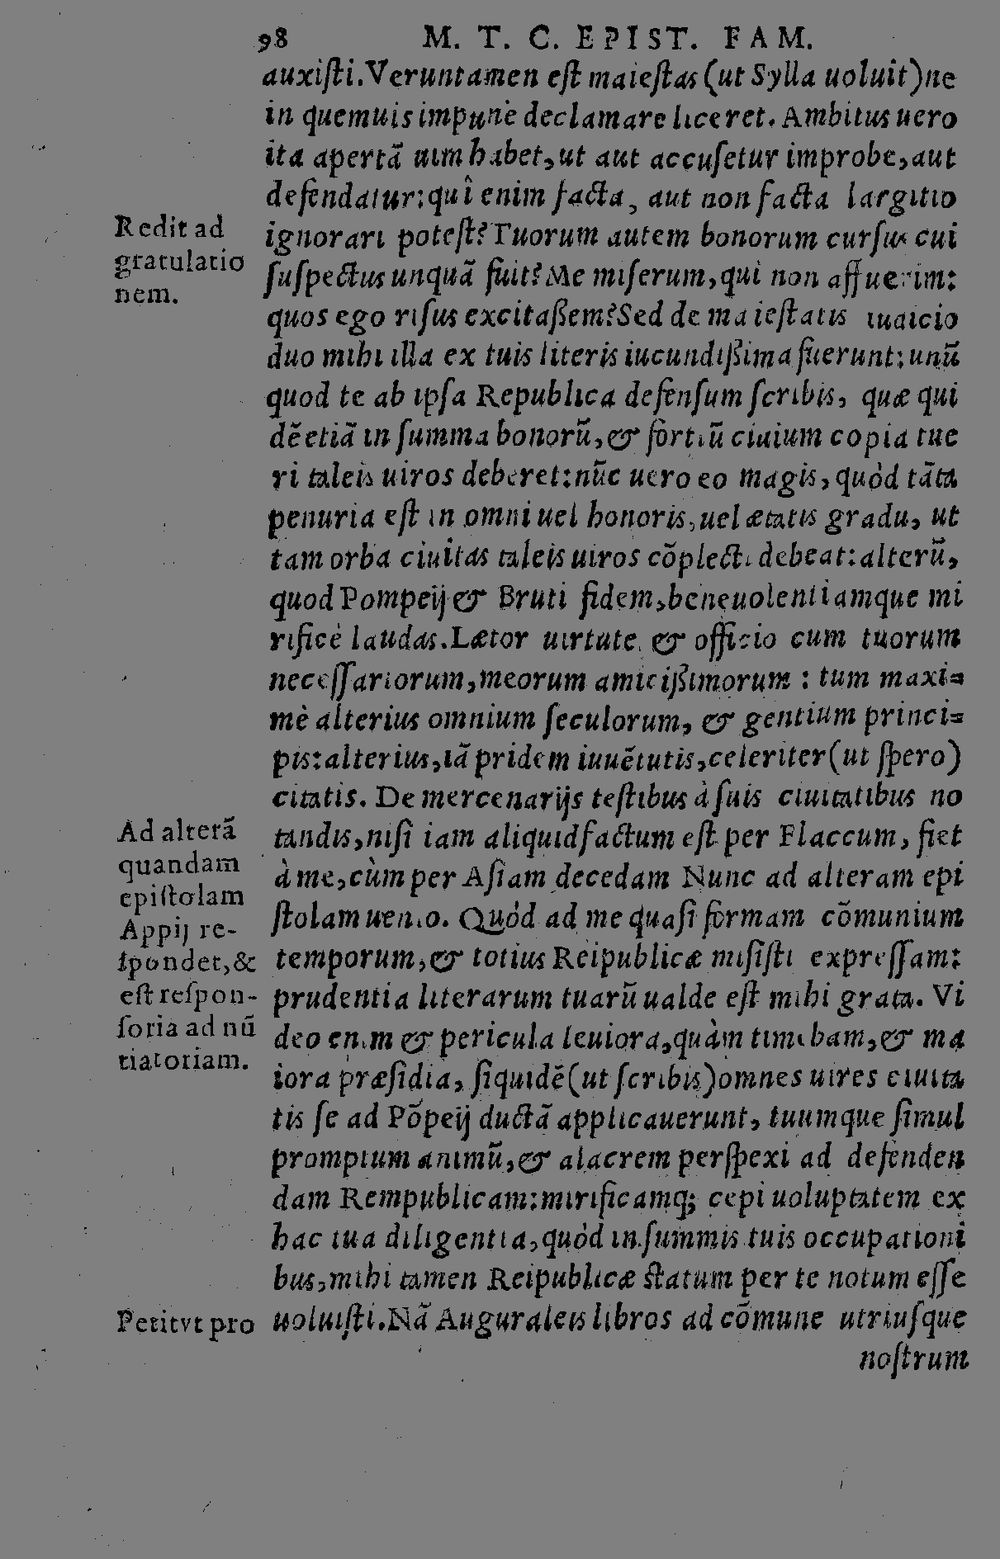 98 M. T. C. EPIST. FAM.
auxiſti. Veruntamen eſt maieſtas (ut Sylla uoluit) ne
in quemuis impunè declamare liceret. Ambitus uero
ita apertã uim habet, ut aut accuſetur improbe, aut
defendatur: quî enim facta, aut non facta largitio
ignorari poteſt? Tuorum autem bonorum curſus cui
ſuſpectus unquã fuit? Me miſerum, qui non affuerim:
quos ego riſus excitaßem? Sed de maieſtatis iudicio
duo mihi illa ex tuis literis iucundißima fuerunt: unũ
quod te ab ipſa Republica defenſum ſcribis, quæ qui
dẽ etiã in ſumma bonorũ, & fortiũ ciuium copia tue
ri taleis uiros deberet: nũc uero eo magis, quòd tãta
penuria eſt in omni uel honoris, uel ætatis gradu, ut
tam orba ciuitas taleis uiros cõplecti debeat: alterũ,
quod Pompeij & Bruti fidem, beneuolentiamque mi
rificè laudas. Lætor uirtute, & officio cum tuorum
neceſſariorum, meorum amicißimorum : tum maxi=
mè alterius omnium ſeculorum, & gentium princi=
pis: alterius, iã pridem iuuẽtutis, celeriter (ut ſpero)
citatis. De mercenarijs teſtibus à ſuis ciuitatibus no
tandis, niſi iam aliquid factum eſt per Flaccum, fiet
à me, cùm per Aſiam decedam Nunc ad alteram epi
ſtolam uenio. Quòd ad me quaſi formam cõmunium
temporum, & totius Reipublicæ miſiſti expreſſam:
prudentia literarum tuarũ ualde eſt mihi grata. Vi
deo enim & pericula leuiora, quàm timebam, & ma
iora præſidia, ſiquidẽ (ut ſcribis) omnes uires ciuita
tis ſe ad Põpeij ductã applicauerunt, tuumque ſimul
promptum animũ, & alacrem perſpexi ad defenden
dam Rempublicam: mirificamq; cepi uoluptatem ex
hac tua diligentia, quòd in ſummis tuis occupationi
bus, mihi tamen Reipublicæ ſtatum per te notum eſſe
uoluiſti. Nã Auguraleis libros ad cõmune utriuſque
noſtrum
Redit ad
gratulatio
nem.
Ad alterã
quandam
epiſtolam
Appij re-
ſpondet, &
eſt reſpon-
ſoria ad nũ
tiatoriam.
Petitvt pro